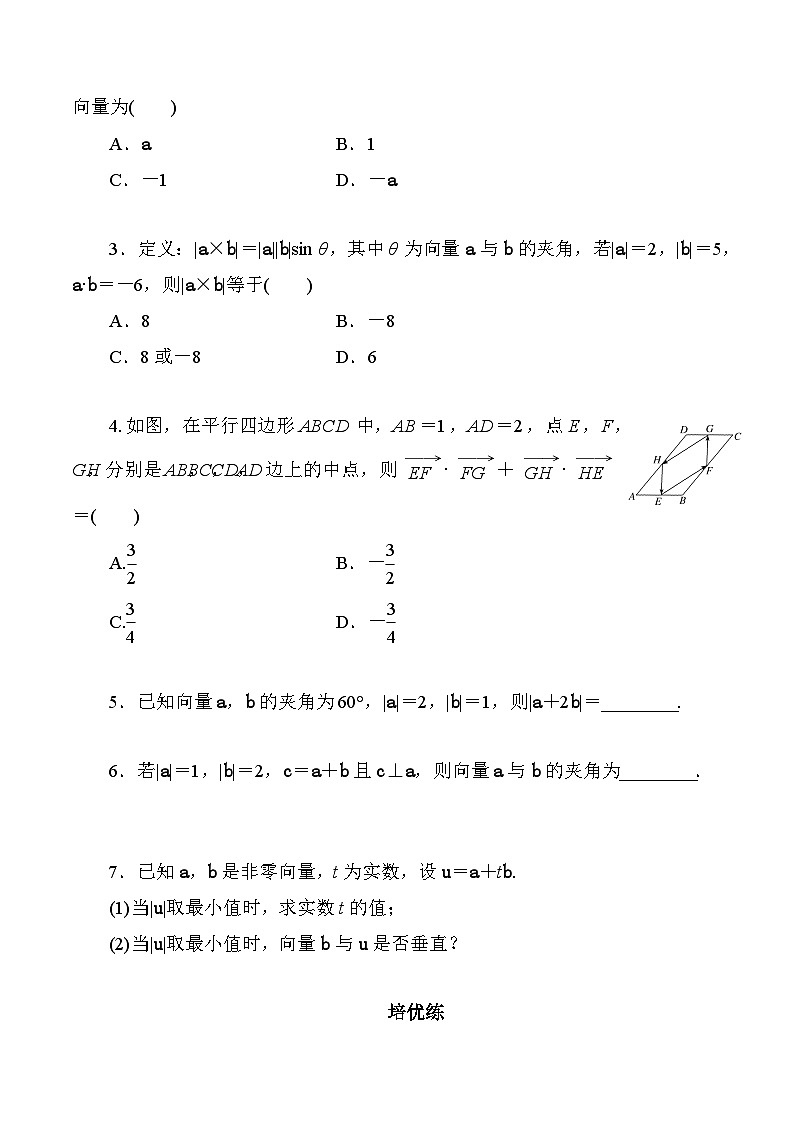 向量为(　　)
A．a　　B．1
C．－1　　D．－a
3．定义：|a×b|＝|a||b|sin θ，其中θ为向量a与b的夹角，若|a|＝2，|b|＝5，
a·b＝－6，则|a×b|等于(　　)
A．8　　B．－8
C．8或－8　　D．6
4.如图，在平行四边形ABCD中，AB＝1，AD＝2，点E，F，
G，H分别是AB，BC，CD，AD边上的中点，则EF·FG＋GH·HE
＝(　　)
D G C
H F
A E B
A.3/2　　B．－3/2
C.3/4　　D．－3/4
5．已知向量a，b的夹角为60°，|a|＝2，|b|＝1，则|a＋2b|＝________.
6．若|a|＝1，|b|＝2，c＝a＋b且c⊥a，则向量a与b的夹角为________.
7．已知a，b是非零向量，t为实数，设u＝a＋tb.
(1)当|u|取最小值时，求实数t的值；
(2)当|u|取最小值时，向量b与u是否垂直？
培优练